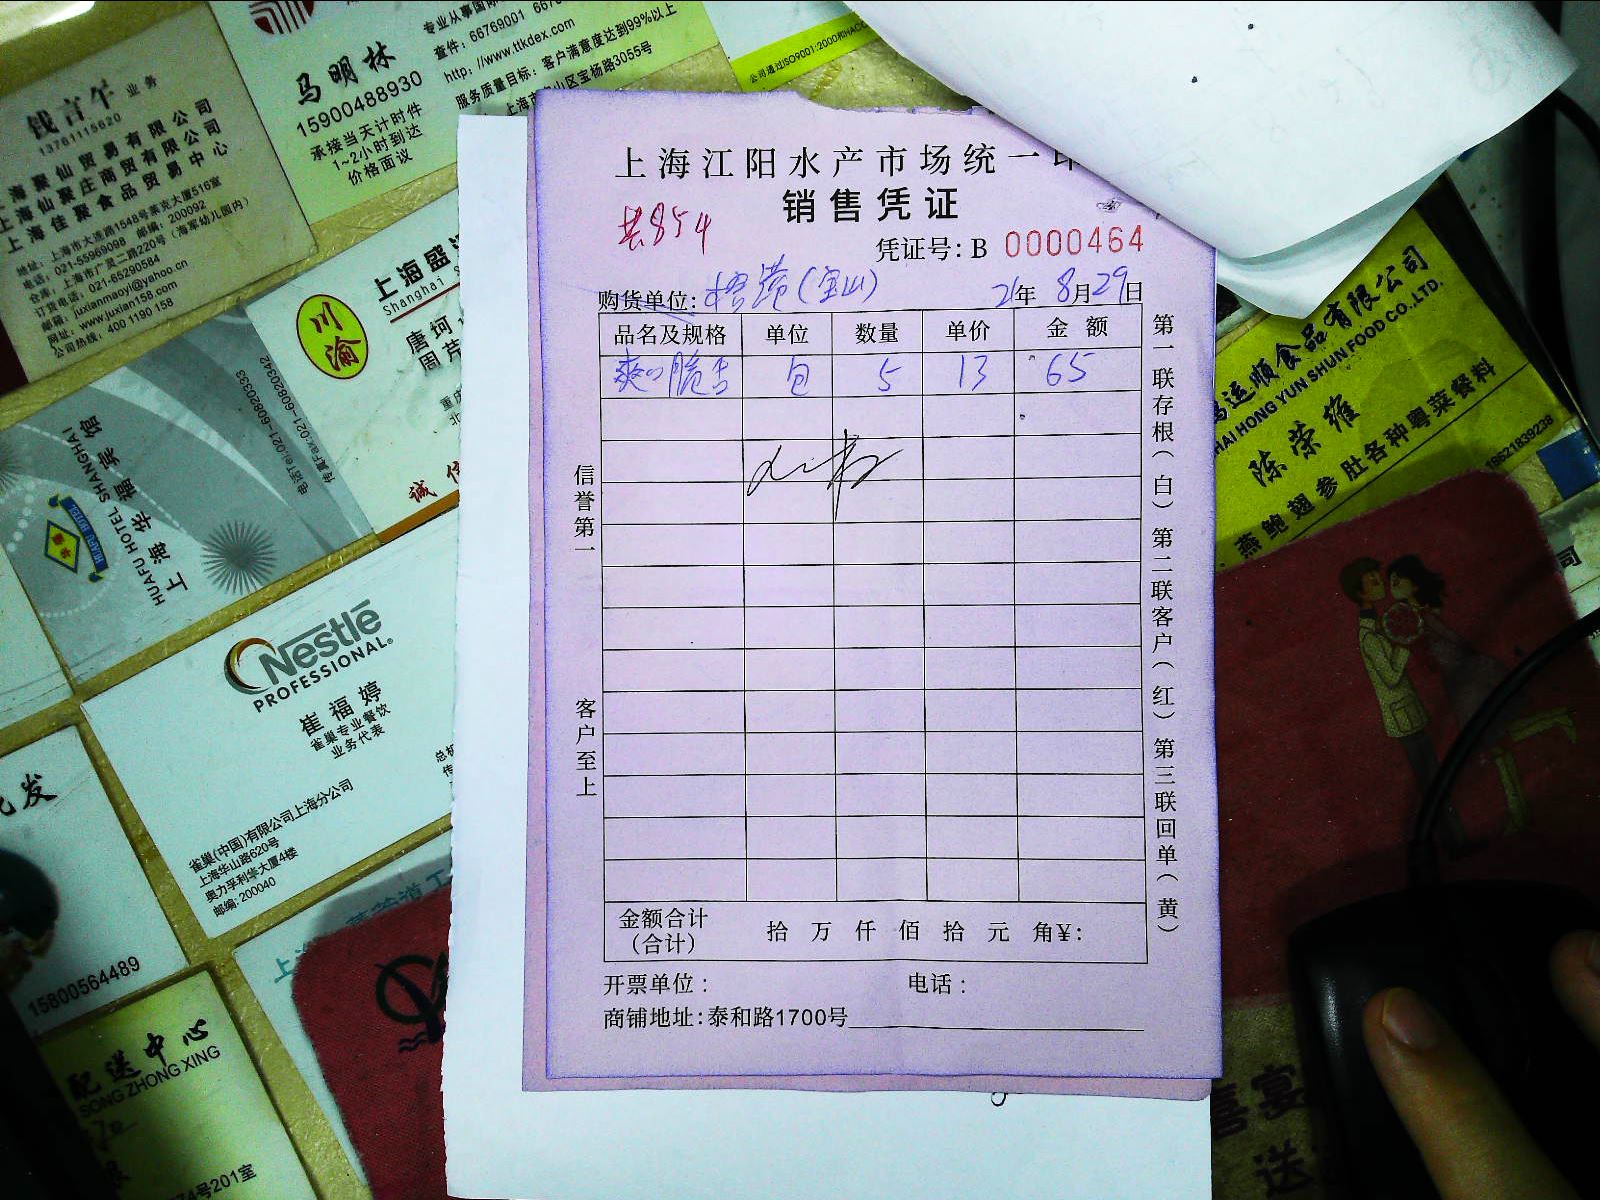 钱言午 业务
13761115620
上海聚仙贸易有限公司
上海仙聚庄商贸有限公司
上海佳聚食品贸易中心
地址：上海市大连路1548号莱克大厦516室
电话：021-55969098 邮编：200092
仓库：上海市广灵二路220号（海军幼儿园内）
订货电话：021-65290584
邮箱：juxianmaoyi@yahoo.cn
网址：www.juxian158.com
公司热线：400 1190 158
马明林
15900488930
承接当天计时件
1~2小时到达
价格面议
专业从事国际
查件：66769001
http://www.ttkdex.com
服务质量目标：客户满意度达到99%以上
上海市宝山区宝杨路3055号
公司通过ISO9001:2000和HACC
川渝
上海盛
Shanghai
唐珂
周芹
诚信
电话Tel:021-60820333
传真Fax:021-60820342
上海华福宾馆
HUAFU HOTEL SHANGHAI
HUAFU HOTEL
Nestlé
PROFESSIONAL®
崔福婷
雀巢专业餐饮
业务代表
雀巢(中国)有限公司上海分公司
上海华山路620号
奥力孚利华大厦4楼
邮编: 200040
批发
15800564489
配送中心
SONGZHONGXING
201室
上海江阳水产市场统一印
销售凭证
共854
凭证号：B 0000464
购货单位：
(宝山)
21年 8月29日
品名及规格 单位 数量 单价 金额
爽口脆 包 5 13 65
信誉第一
客户至上
第一联存根（白）第二联客户（红）第三联回单（黄）
金额合计
（合计）
拾 万 仟 佰 拾 元 角¥：
开票单位： 电话：
商铺地址：泰和路1700号
鸿运顺食品有限公司
SHANGHAI HONG YUN SHUN FOOD CO.,LTD.
陈荣雄
燕鲍翅参肚各种粤菜餐料
18621839238
司
喜宴
送